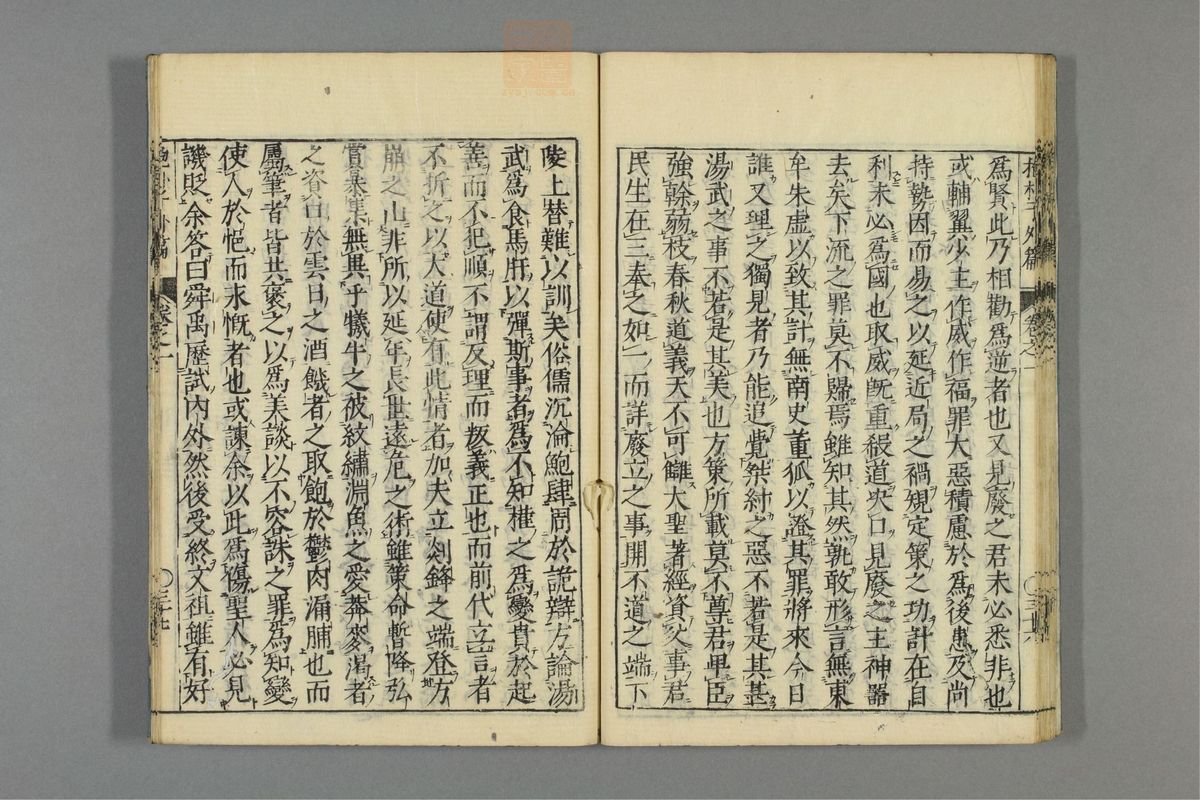 爲賢此乃相勸爲逆者也又見廢之君未必悉非也
或輔翼少主作威作福罪大惡積慮於爲後患及尚
持勢因而易之以延近局之禍規定策之功計在自
利未必爲國也取威既重殺道央口見廢之主神器
去矣下流之罪莫不歸焉雖知其然孰敢形言無東
牟朱虛以致其計無南史董狐以證其罪將來今日
誰又理之獨見者乃能追覺桀紂之惡不若是其甚
湯武之事不若是其美也方策所載莫不尊君卑臣
強幹弱枝春秋道義天不可讎大聖著經資父事君
民生在三奉之如一而詳廢立之事開不道之端下
陵上替難以訓矣俗儒沉淪鮑肆困於詭辯方論湯
武爲食馬肝以彈斯事者爲不知權之爲變貴於起
善而不犯順不謂反理而叛義正也而前代立言者
不折之以大道使有此情者加夫立剡鋒之端登方
崩之山非所以延年長世遠危之術雖策命暫降弘
賞暴集無異乎犧牛之被紋繡淵魚之愛莽麥渴者
之資口於雲日之酒饑者之取飽於鬱肉漏脯也而
屬筆者皆共褒之以爲美談以不容誅之罪爲知變
使人於悒而永慨者也或諫余以此爲傷聖人必見
譏貶余答曰舜禹歷試內外然後受終文祖雖有好